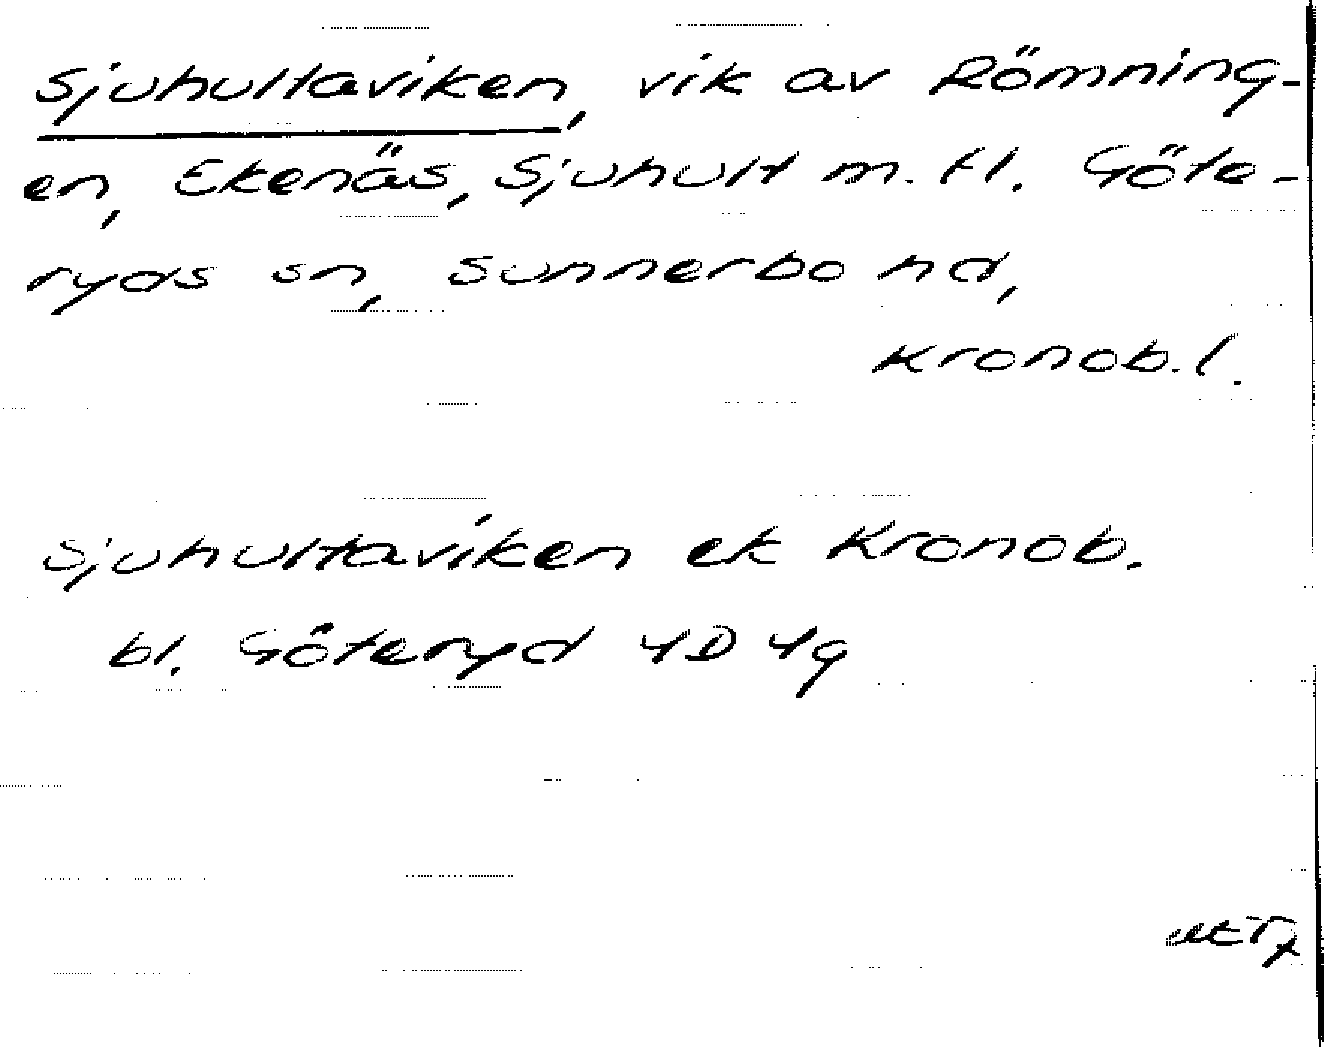 Sjuhultaviken, vik av Römning-
en, Ekenäs, Sjuhult m. fl. Göte-
ryds sn, Sunnerbo hd,
Kronob. l.
Sjuhultaviken ek Kronob.
bl. Göteryd 4D 4g